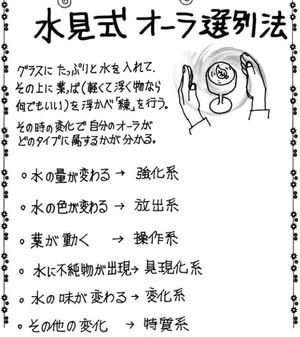 水見式オーラ選別法
グラスに たっぷりと水を入れて、
その上に葉っぱ(軽くて浮く物なら
何でもいい)を浮かべ「錬」を行う。
その時の変化で自分のオーラが
どのタイプに属するかが分かる。
○水の量が変わる → 強化系
○水の色が変わる → 放出系
○葉が動く → 操作系
○水に不純物が出現→具現化系
○水の味が変わる→変化系
○その他の変化 → 特質系